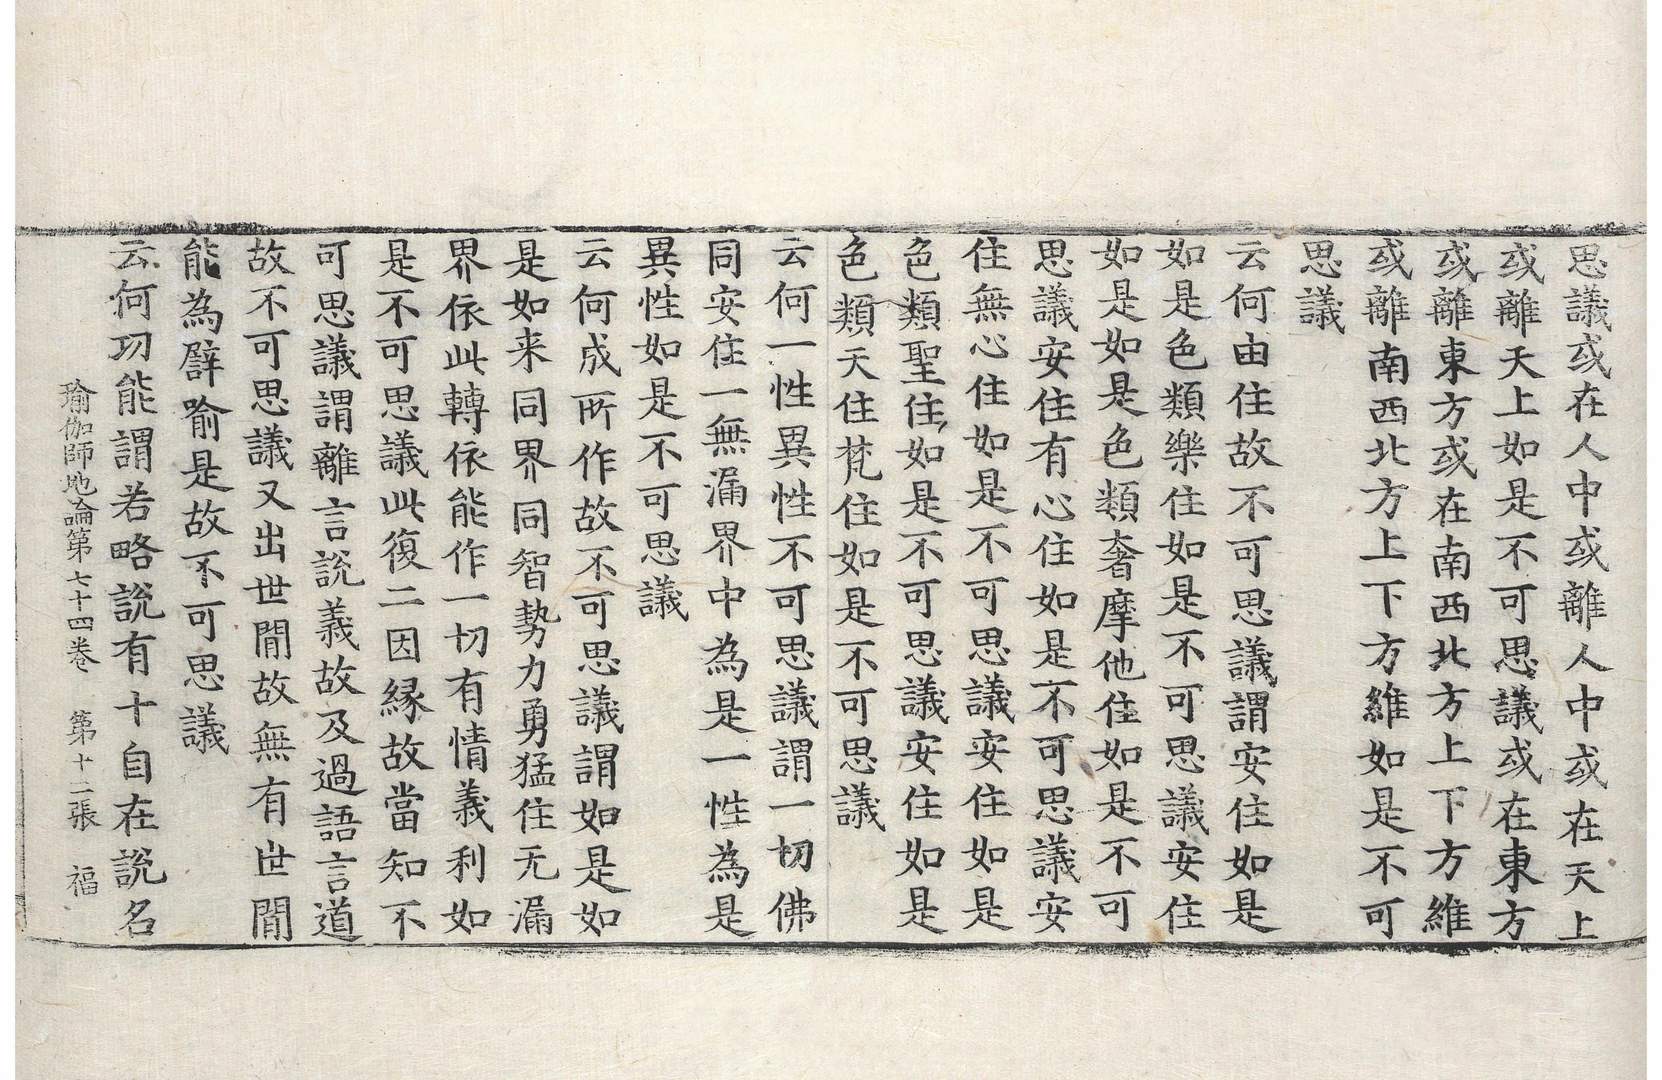 思議或在人中或離人中或在天上
或離天上如是不可思議或在東方
或離東方或在南西北方上下方維
或離南西北方上下方維如是不可
思議
云何由住故不可思議謂安住如是
如是色類樂住如是不可思議安住
如是如是色類奢摩他住如是不可
思議安住有心住如是不可思議安
住無心住如是不可思議安住如是
色類聖住如是不可思議安住如是
色類天住梵住如是不可思議
云何一性異性不可思議謂一切佛
同安住一無漏界中為是一性為是
異性如是不可思議
云何成所作故不可思議謂如是如
是如来同界同智勢力勇猛住无漏
界依此轉依能作一切有情義利如
是不可思議此復二因緣故當知不
可思議謂離言說義故及過語言道
故不可思議又出世間故無有世間
能為譬喻是故不可思議
云何功能謂若略說有十自在說名
瑜伽師地論第七十四卷 第十二張 福